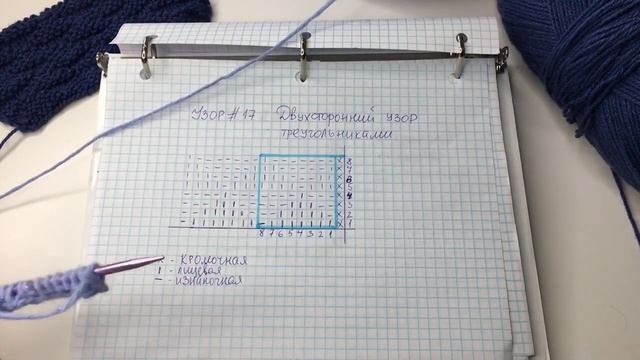 Узор #17 Двухсторонний узор
треугольниками
8
7
6
5
4
3
2
1
8 7 6 5 4 3 2 1
х - кромочная
ı - лицевая
– - изнаночная